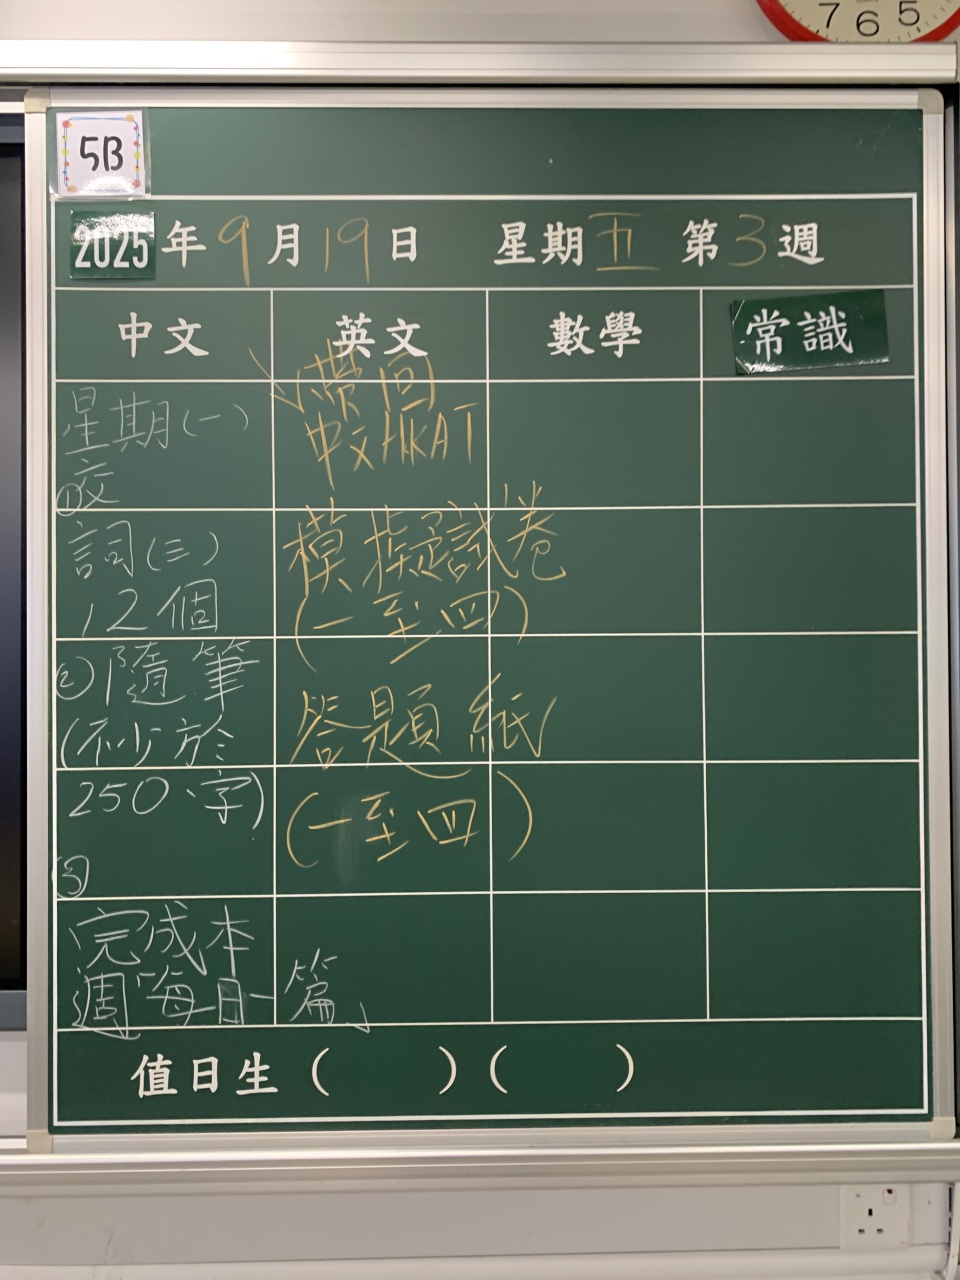 7 6 5
5B
2025年9月19日 星期五 第3週
中文 英文 數學 常識
星期(一)
交
①
詞(三)
12個
②隨筆
(不少於
250字)
③
完成本
週「每日一篇」
(帶回)
中文HKAT
模擬試卷
(一至四)
答題紙
(一至四)
值日生 ( ) ( )